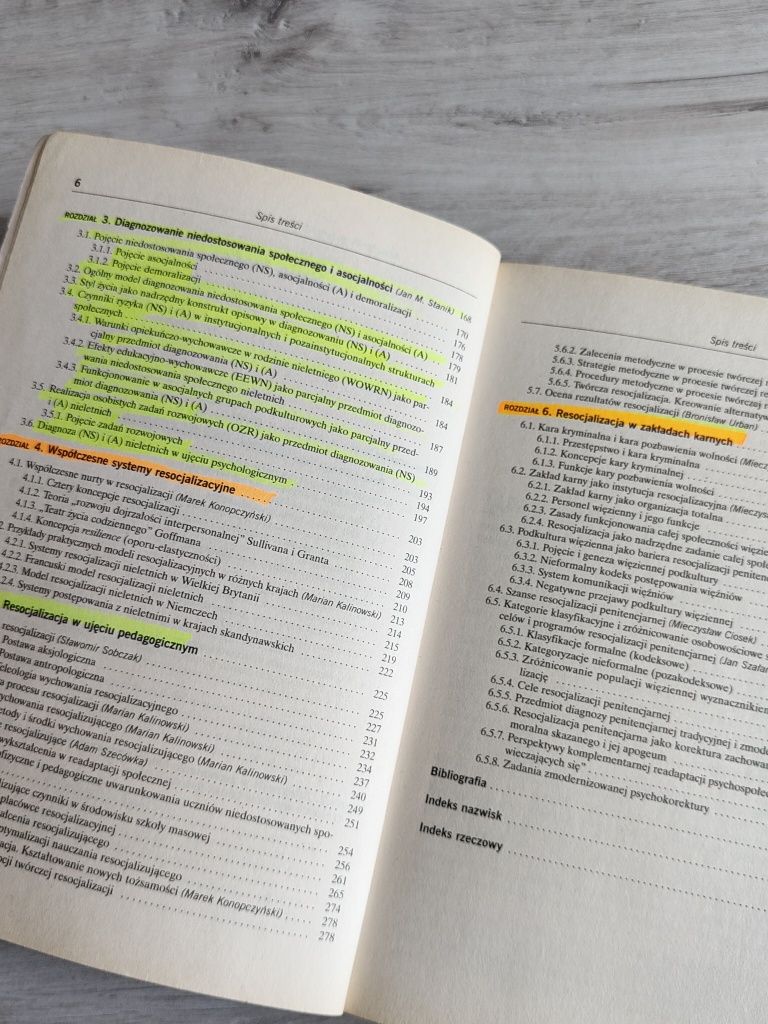 6
Spis treści
ROZDZIAŁ 3. Diagnozowanie niedostosowania społecznego i asocjalności (Jan M. Stanik) 168
3.1. Pojęcie niedostosowania społecznego (NS), asocjalności (A) i demoralizacji
3.1.1. Pojęcie asocjalności 170
3.1.2. Pojęcie demoralizacji 176
3.2. Ogólny model diagnozowania niedostosowania społecznego (NS) i asocjalności (A) 178
3.3. Styl życia jako nadrzędny konstrukt opisowy w diagnozowaniu (NS) i (A) 179
3.4. Czynniki ryzyka (NS) i (A) w instytucjonalnych i pozainstytucjonalnych strukturach
społecznych 181
3.4.1. Warunki opiekuńczo-wychowawcze w rodzinie nieletniego (WOWRN) jako par-
cjalny przedmiot diagnozowania (NS) i (A) 184
3.4.2. Efekty edukacyjno-wychowawcze (EEWN) jako parcjalny przedmiot diagnozo-
wania niedostosowania społecznego nieletnich 184
3.4.3. Funkcjonowanie w asocjalnych grupach podkulturowych jako parcjalny przed-
miot diagnozowania (NS) i (A) 187
3.5. Realizacja osobistych zadań rozwojowych (OZR) jako przedmiot diagnozowania (NS)
i (A) nieletnich 189
3.5.1. Pojęcie zadań rozwojowych 193
3.6. Diagnoza (NS) i (A) nieletnich w ujęciu psychologicznym 194
ROZDZIAŁ 4. Współczesne systemy resocjalizacyjne 197
4.1. Współczesne nurty w resocjalizacji (Marek Konopczyński)
4.1.1. Cztery koncepcje resocjalizacji 203
4.1.2. Teoria „rozwoju dojrzałości interpersonalnej” Sullivana i Granta 203
4.1.3. „Teatr życia codziennego” Goffmana 205
4.1.4. Koncepcja resilience (oporu-elastyczności) 208
2. Przykłady praktycznych modeli resocjalizacyjnych w różnych krajach (Marian Kalinowski) 209
4.2.1. Systemy resocjalizacji nieletnich w Wielkiej Brytanii 210
4.2.2. Francuski model resocjalizacji nieletnich 213
4.2.3. Model resocjalizacji nieletnich w Niemczech 214
2.4. Systemy postępowania z nieletnimi w krajach skandynawskich 215
Resocjalizacja w ujęciu pedagogicznym 219
resocjalizacji (Sławomir Sobczak) 222
Postawa aksjologiczna
Postawa antropologiczna 225
eleologia wychowania resocjalizacyjnego 225
a procesu resocjalizacji (Marian Kalinowski) 227
wychowania resocjalizującego (Marian Kalinowski) 231
etody i środki wychowania resocjalizującego (Marian Kalinowski) 232
e resocjalizujące (Adam Szecówka) 234
wykształcenia w readaptacji społecznej 237
ofizyczne i pedagogiczne uwarunkowania uczniów niedostosowanych spo- 240
249
lizujące czynniki w środowisku szkoły masowej 251
placówce resocjalizacyjnej 254
alcenia resocjalizującego 256
ptymalizacji nauczania resocjalizującego 261
acja. Kształtowanie nowych tożsamości (Marek Konopczyński) 265
274
cji twórczej resocjalizacji 278
278
Spis treści
5.6.2. Zalecenia metodyczne w procesie twórczej r
5.6.3. Strategie metodyczne w procesie twórczej re
5.6.4. Procedury metodyczne w procesie twórczej r
5.6.5. Twórcza resocjalizacja. Kreowanie alternatyw
5.7. Ocena rezultatów resocjalizacji (Bronisław Urban)
ROZDZIAŁ 6. Resocjalizacja w zakładach karnych
6.1. Kara kryminalna i kara pozbawienia wolności (Miecz
6.1.1. Przestępstwo i kara kryminalna
6.1.2. Koncepcje kary kryminalnej
6.1.3. Funkcje kary pozbawienia wolności
6.2. Zakład karny jako instytucja resocjalizacyjna (Mieczysła
6.2.1. Zakład karny jako organizacja totalna
6.2.2. Personel więzienny i jego funkcje
6.2.3. Zasady funkcjonowania całej społeczności więzie
6.2.4. Resocjalizacja jako nadrzędne zadanie całej społe
6.3. Podkultura więzienna jako bariera resocjalizacji peniten
6.3.1. Pojęcie i geneza więziennej podkultury
6.3.2. Nieformalny kodeks postępowania więźniów
6.3.3. System komunikacji więźniów
6.3.4. Negatywne przejawy podkultury więziennej
6.4. Szanse resocjalizacji penitencjarnej (Mieczysław Ciosek)
6.5. Kategorie klasyfikacyjne i zróżnicowanie osobowościowe s
celów i programów resocjalizacji penitencjarnej (Jan Szałań
6.5.1. Klasyfikacje formalne (kodeksowe)
6.5.2. Kategoryzacje nieformalne (pozakodeksowe)
6.5.3. Zróżnicowanie populacji więziennej wyznacznikien
lizację
6.5.4. Cele resocjalizacji penitencjarnej
6.5.5. Przedmiot diagnozy penitencjarnej tradycyjnej i zmode
6.5.6. Resocjalizacja penitencjarna jako korektura zachowa
moralna skazanego i jej apogeum
6.5.7. Perspektywy komplementarnej readaptacji psychospołe
wieczających się”
6.5.8. Zadania zmodernizowanej psychokorektury
Bibliografia
Indeks nazwisk
Indeks rzeczowy